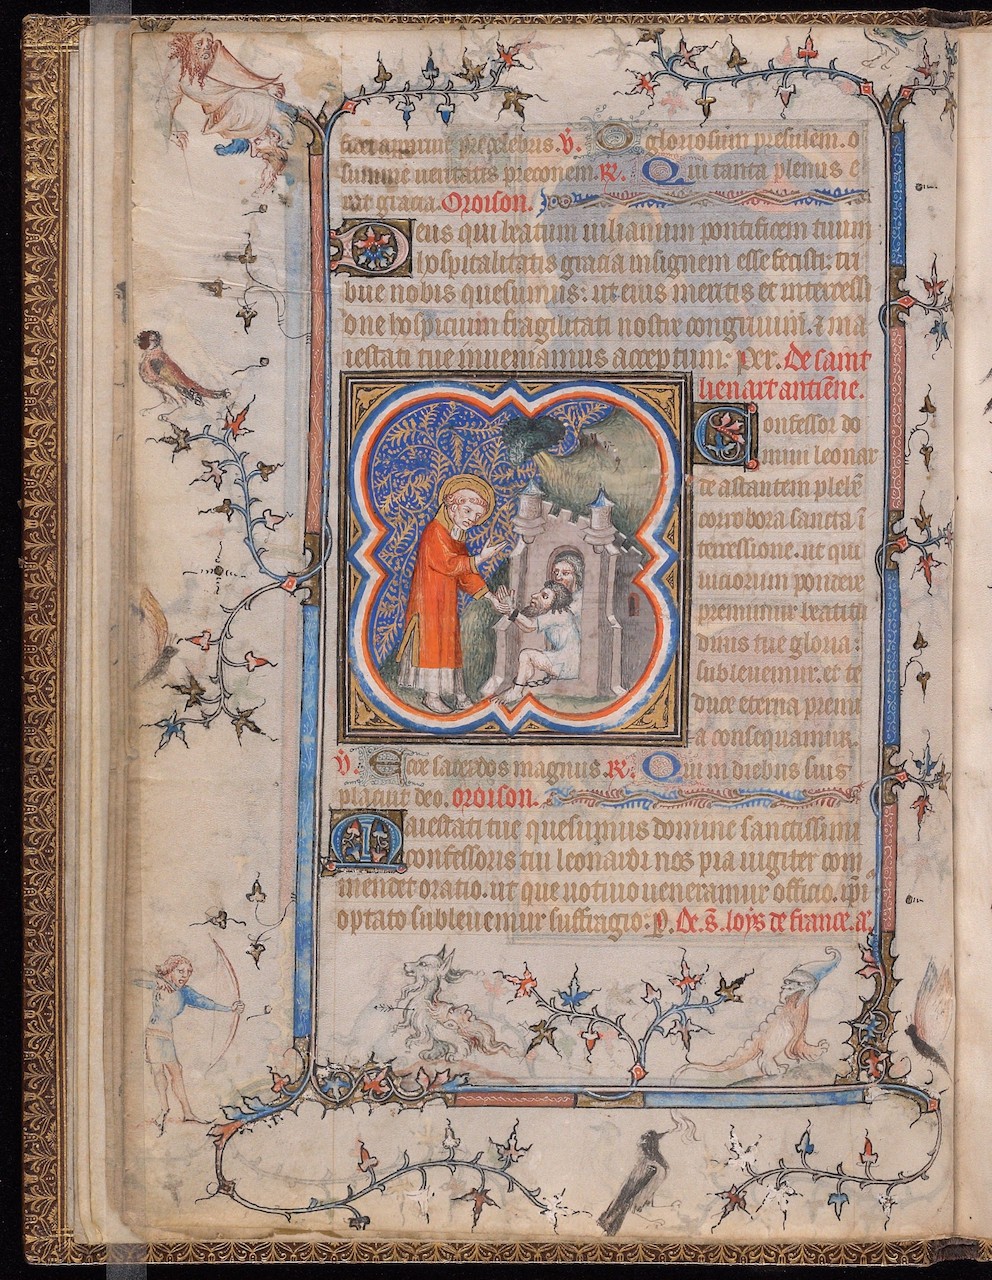 gloriosum presulem. o
summe ueritatis preconem. R. Qui tanta plenus e
rat gracia. Oroison.
Deus qui beatum iulianum pontificem tuum
hospitalitatis gracia insignem esse fecisti: tri
bue nobis quesumus: ut eius meritis et intercessi
one hospicium fragilitati nostre congruum. & ma
iestati tue inueniamus acceptum. per. De saint
lienart antiēne.
Confessor do
mini leonar
de astantem plebē
corrobora sancta ī
tercessione. ut qui
uiciorum pondere
premimur beatitu
dinis tue gloria:
subleuemur. et te
duce eterna premi
a consequamur.
V. Ecce sacerdos magnus. R. Qui in diebus suis
placuit deo. oroison.
Maiestati tue quesumus domine sanctissimi
confessoris tui leonardi nos pia iugiter com
mendet oratio. ut que uotiuo ueneramur officio. ipi
optato subleuemur suffragio. P. De .s. loys de france. a.